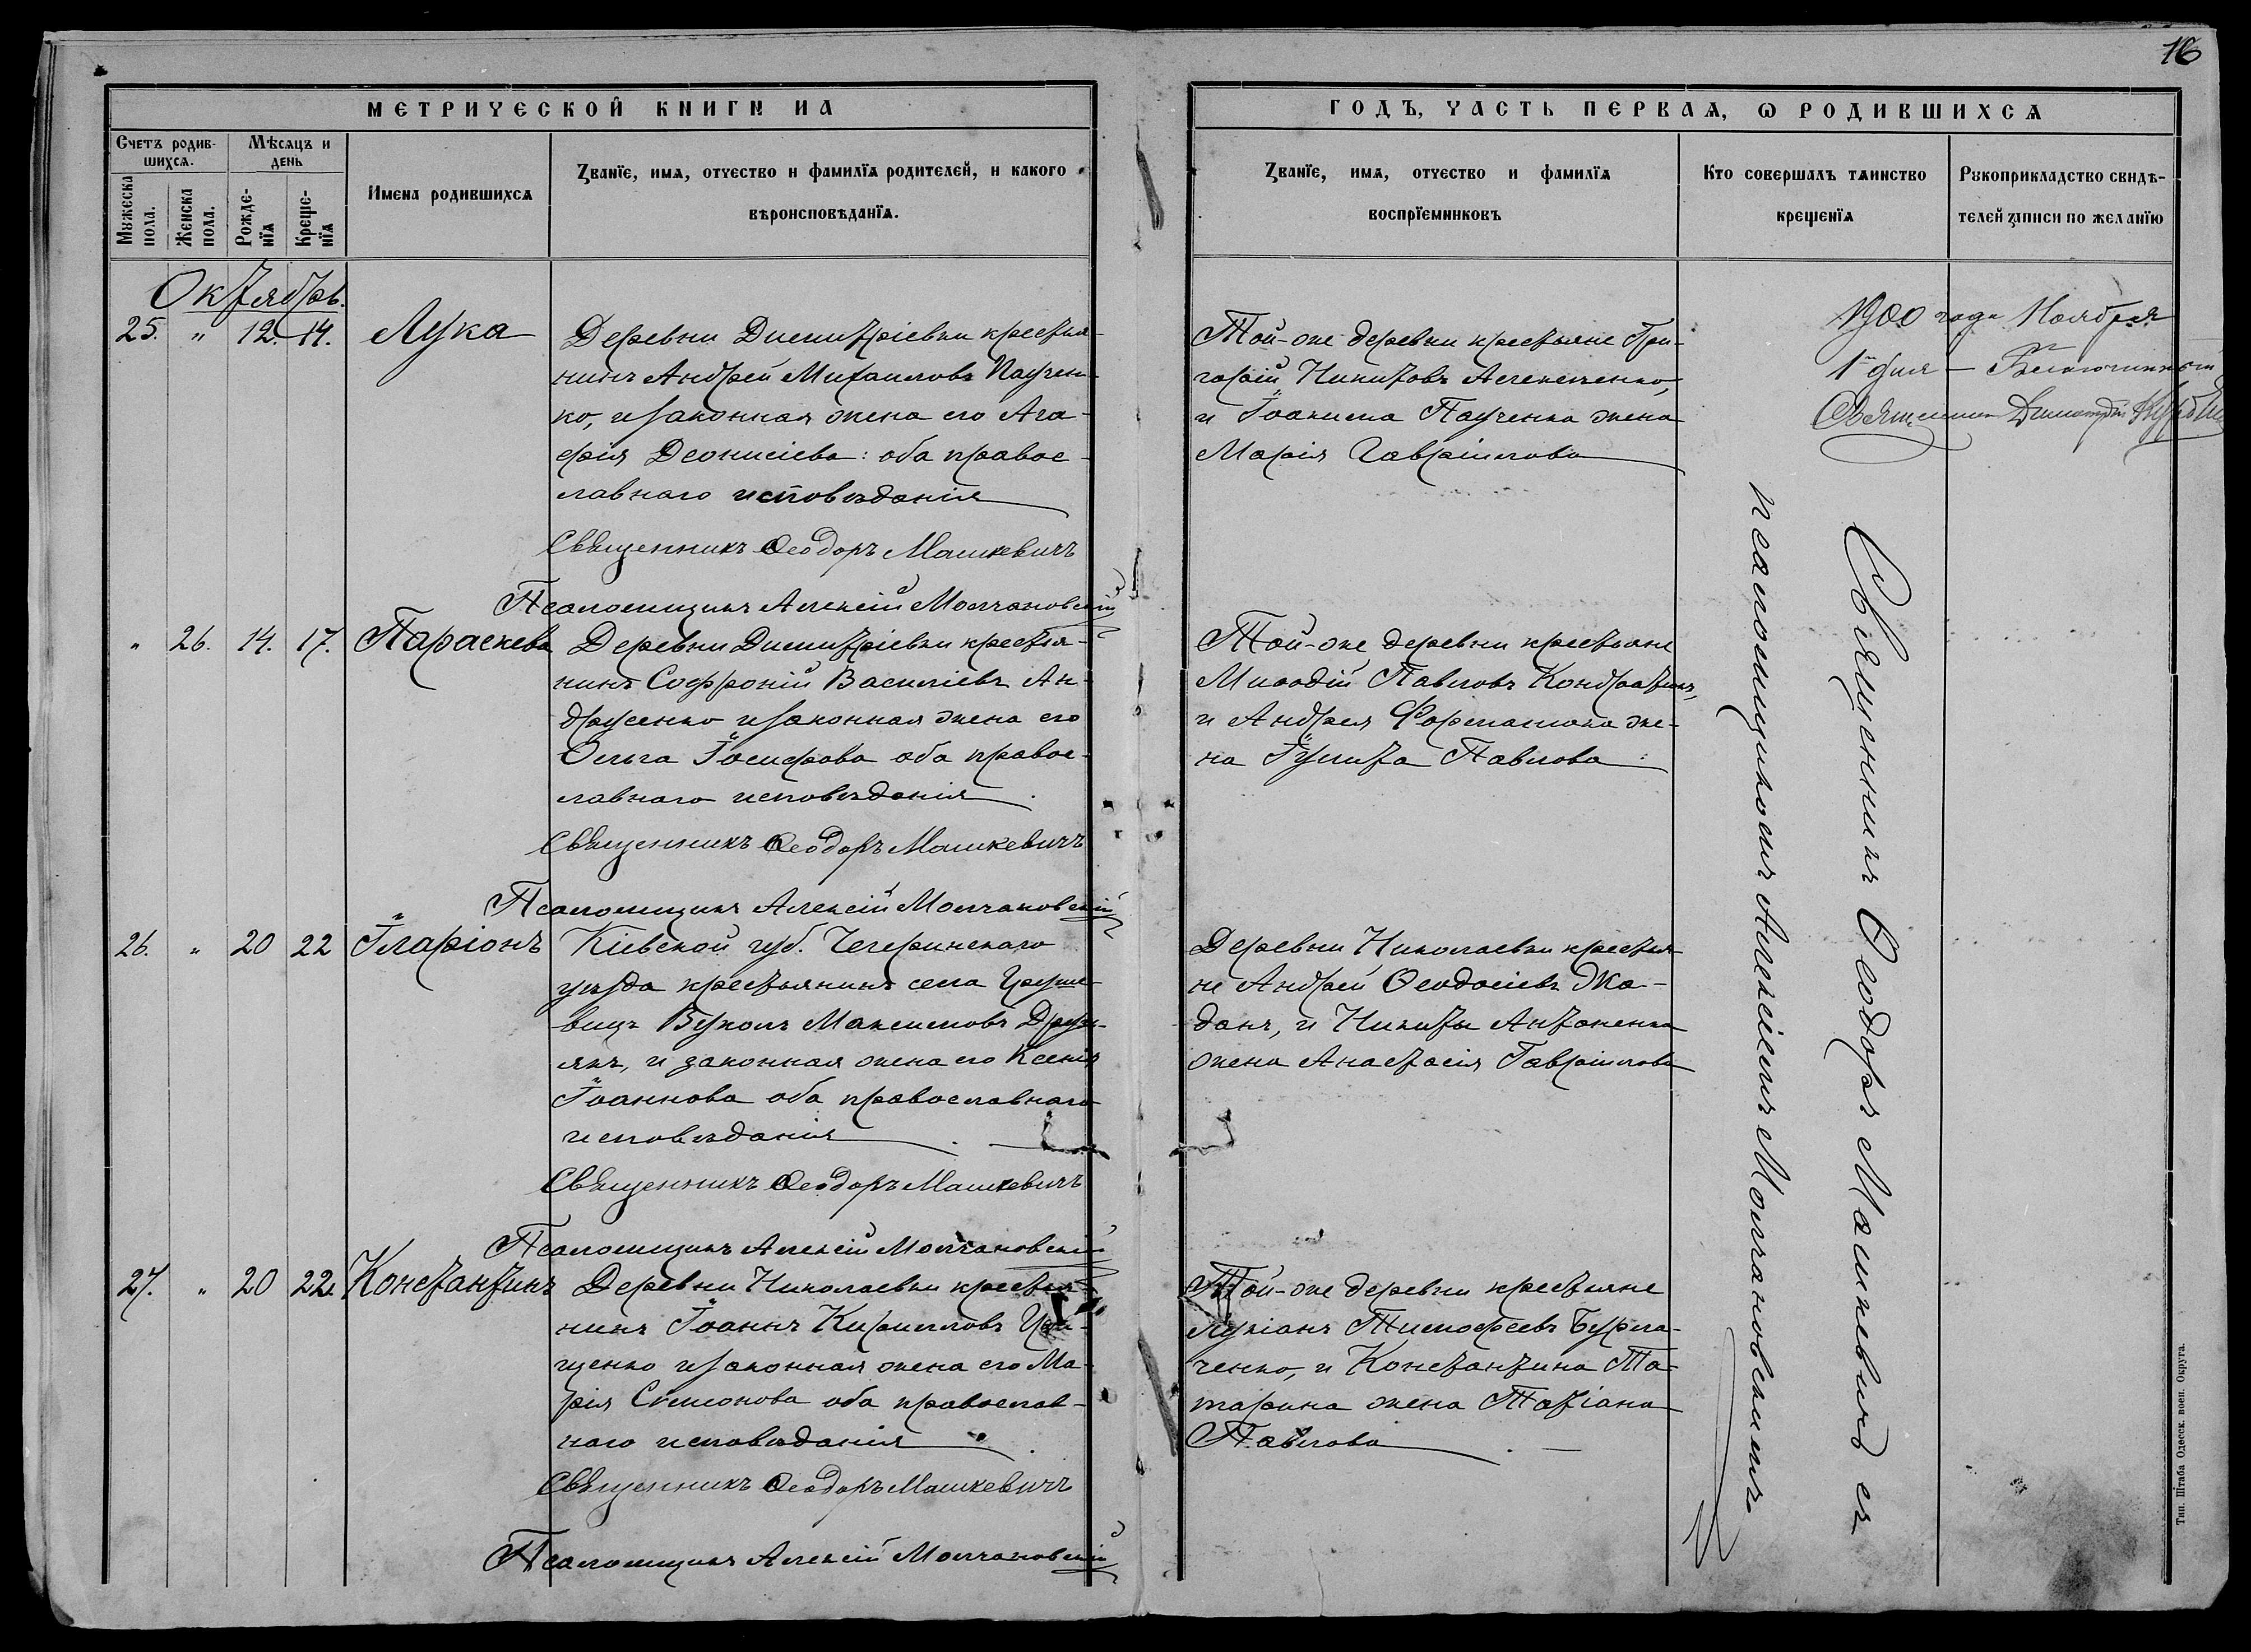 16
МЕТРИЧЕСКОЙ КНИГИ НА
ГОДЪ, ЧАСТЬ ПЕРВАѦ, Ѡ РОДИВШИХСѦ
Счетъ родив-
шихсѧ.
Мѣсѧцъ и
день
Мꙋжеска
пола.
Женска
пола.
Рожде-
нїѧ
Креще-
нїѧ
Имена родившихсѧ
Званїе, имѧ, отчество и фамилїѧ родителей, и какого
вѣроисповѣданїѧ.
Званїе, имѧ, отчество и фамилїѧ
воспрїемниковъ
Кто совершалъ таинство
крещенїѧ
Рꙋкоприкладство свидѣ-
телей записи по желанїю
Октябрь.
25. " 12. 14. Лука
Деревни Димитріевки крестья-
нинъ Андрей Михаиловъ Паучен-
ко, и законная жена его Ага-
фія Деонисіева: оба правос-
лавнаго исповѣданія
Священникъ Ѳеодоръ Машкевичъ
Псаломщикъ Алексій Молчановскій
Той-же деревни крестьяне Гри-
горій Никитовъ
и Іоакима Паученка жена
Марія Гавріилова
1900 года Ноября
1 дня – Благочинный
Священникъ Димитрій
" 26. 14. 17. Параскева
Деревни Димитріевки крестья-
нинъ Софроній Василіевъ Ан-
друсенко и законная жена его
Ольга Іосифова оба правос-
лавнаго исповѣданія.
Священникъ Ѳеодоръ Машкевичъ
Псаломщикъ Алексій Молчановскій
Той-же деревни крестьяне
Меѳодій Павловъ
и Андрея же-
на Іулита Павлова
26. " 20 22 Иларіонъ
Кіевской губ. Чегеринскаго
уѣзда крестьянинъ села
Вуколъ Максимовъ
и законная жена его Ксенія
Іоаннова оба православнаго
исповѣданія.
Священникъ Ѳеодоръ Машкевичъ
Псаломщикъ Алексій Молчановскій
Деревни Николаевки крестья-
не Андрей Ѳеодосіевъ Жа-
данъ, и Никиты Антоненка
жена Анастасія Гавріилова
27. " 20 22. Константинъ
Деревни Николаевки крестья-
нинъ Іоаннъ Кирилловъ
щенко и законная жена его Ма-
рія Симонова оба православ-
наго исповѣданія.
Священникъ Ѳеодоръ Машкевичъ
Псаломщикъ Алексій Молчановскій
Той-же деревни крестьяне
Лукіанъ Тимофеевъ Бурла-
ченко, и Константина Та-
тарина жена Татіана
Павлова.
Священникъ Ѳеодоръ Машкевичъ съ
псаломщикомъ Алексіемъ Молчановскимъ
Тип. Штаба Одесск. воен. Округа.